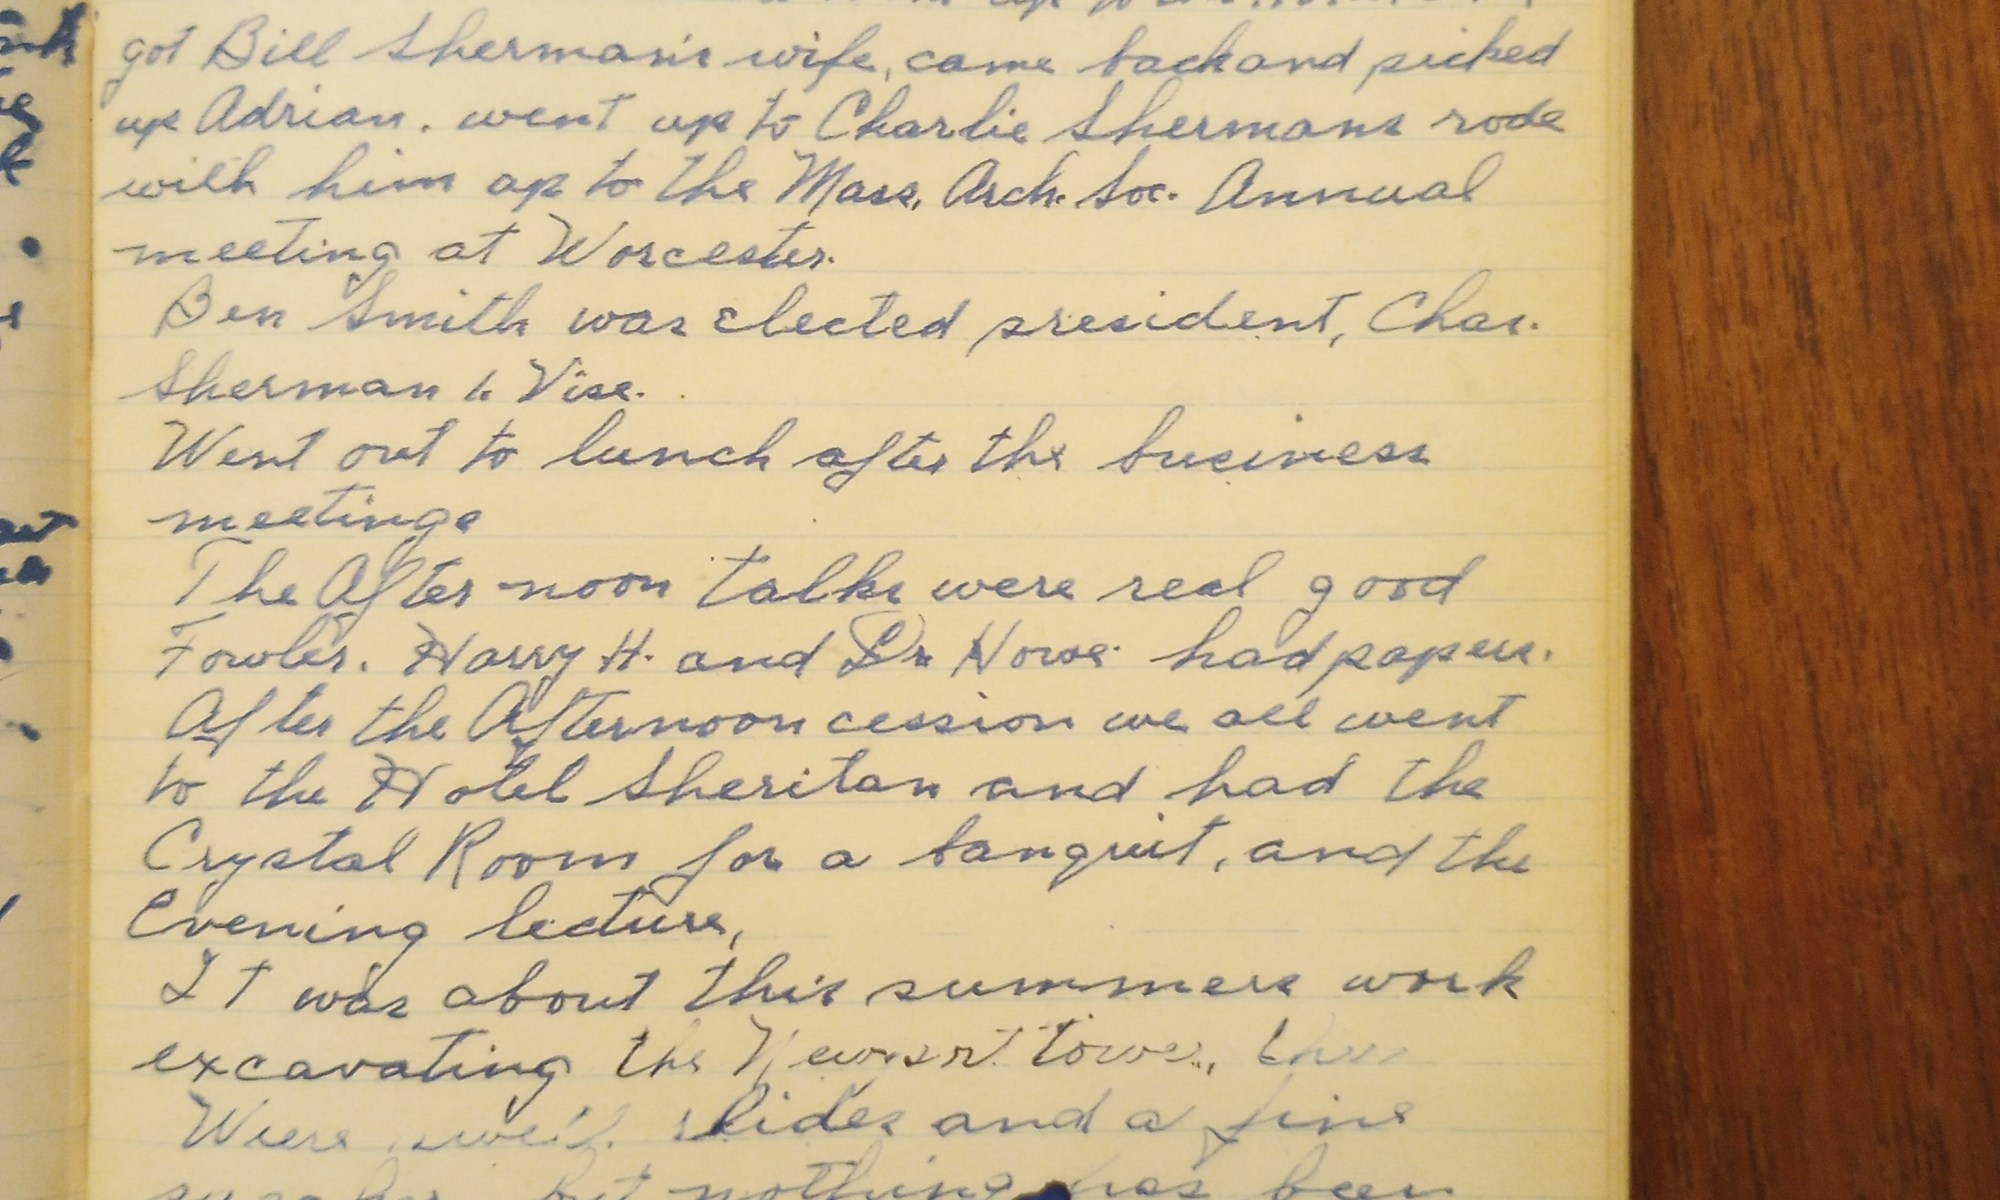 got Bill Sherman's wife, came back and picked
up Adrian. went up to Charlie Shermans rode
with him up to the Mass. Arch. Soc. Annual
meeting at Worcester.
Ben Smith was elected president, Chas.
Sherman is Vise.
Went out to lunch after the business
meetings
The After noon talks were real good
Fowler. Harry H. and Dr Howe had papers.
After the Afternoon cession we all went
to the Hotel Sheritan and had the
Crystal Room for a banquit, and the
Evening lecture,
It was about this summers work
excavating the Newport tower,
Were slides and a fine
but nothing has been